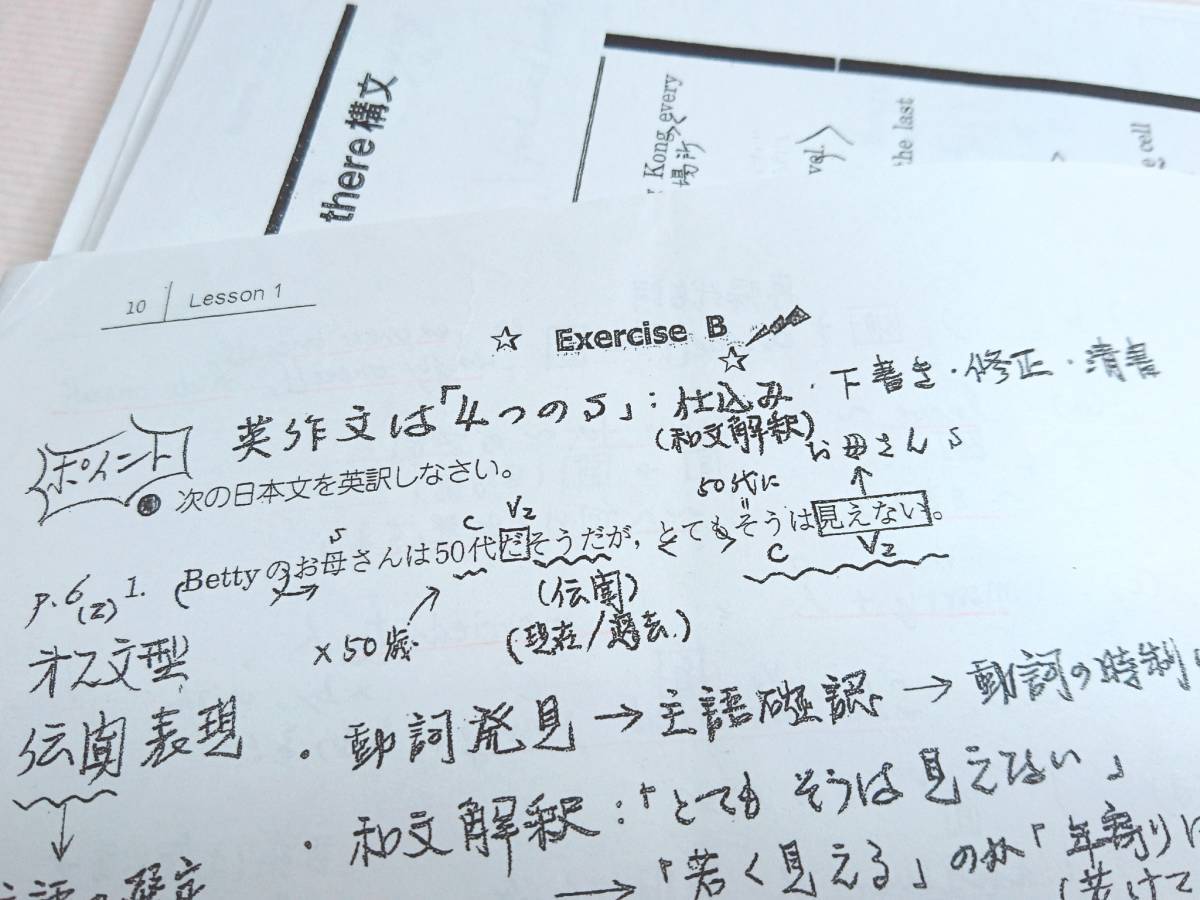 there 構文
Kong every
場所
the last
cell
10 Lesson 1
☆ Exercise B ☆
ポイント 英作文は「4つのS」：仕込み・下書き・修正・清書
(和文解釈)
次の日本文を英訳しなさい。
お母さん S
50代に
S C V2
p.6(2) 1. Bettyのお母さんは50代だそうだが，とてもそうは見えない。
C V2
×50歳
(伝聞)
(現在/過去)
第2文型
伝聞表現
・動詞発見→主語確認→動詞の時制
・和文解釈：「とても そうは見えない」
→「若く見える」のか「年寄りに